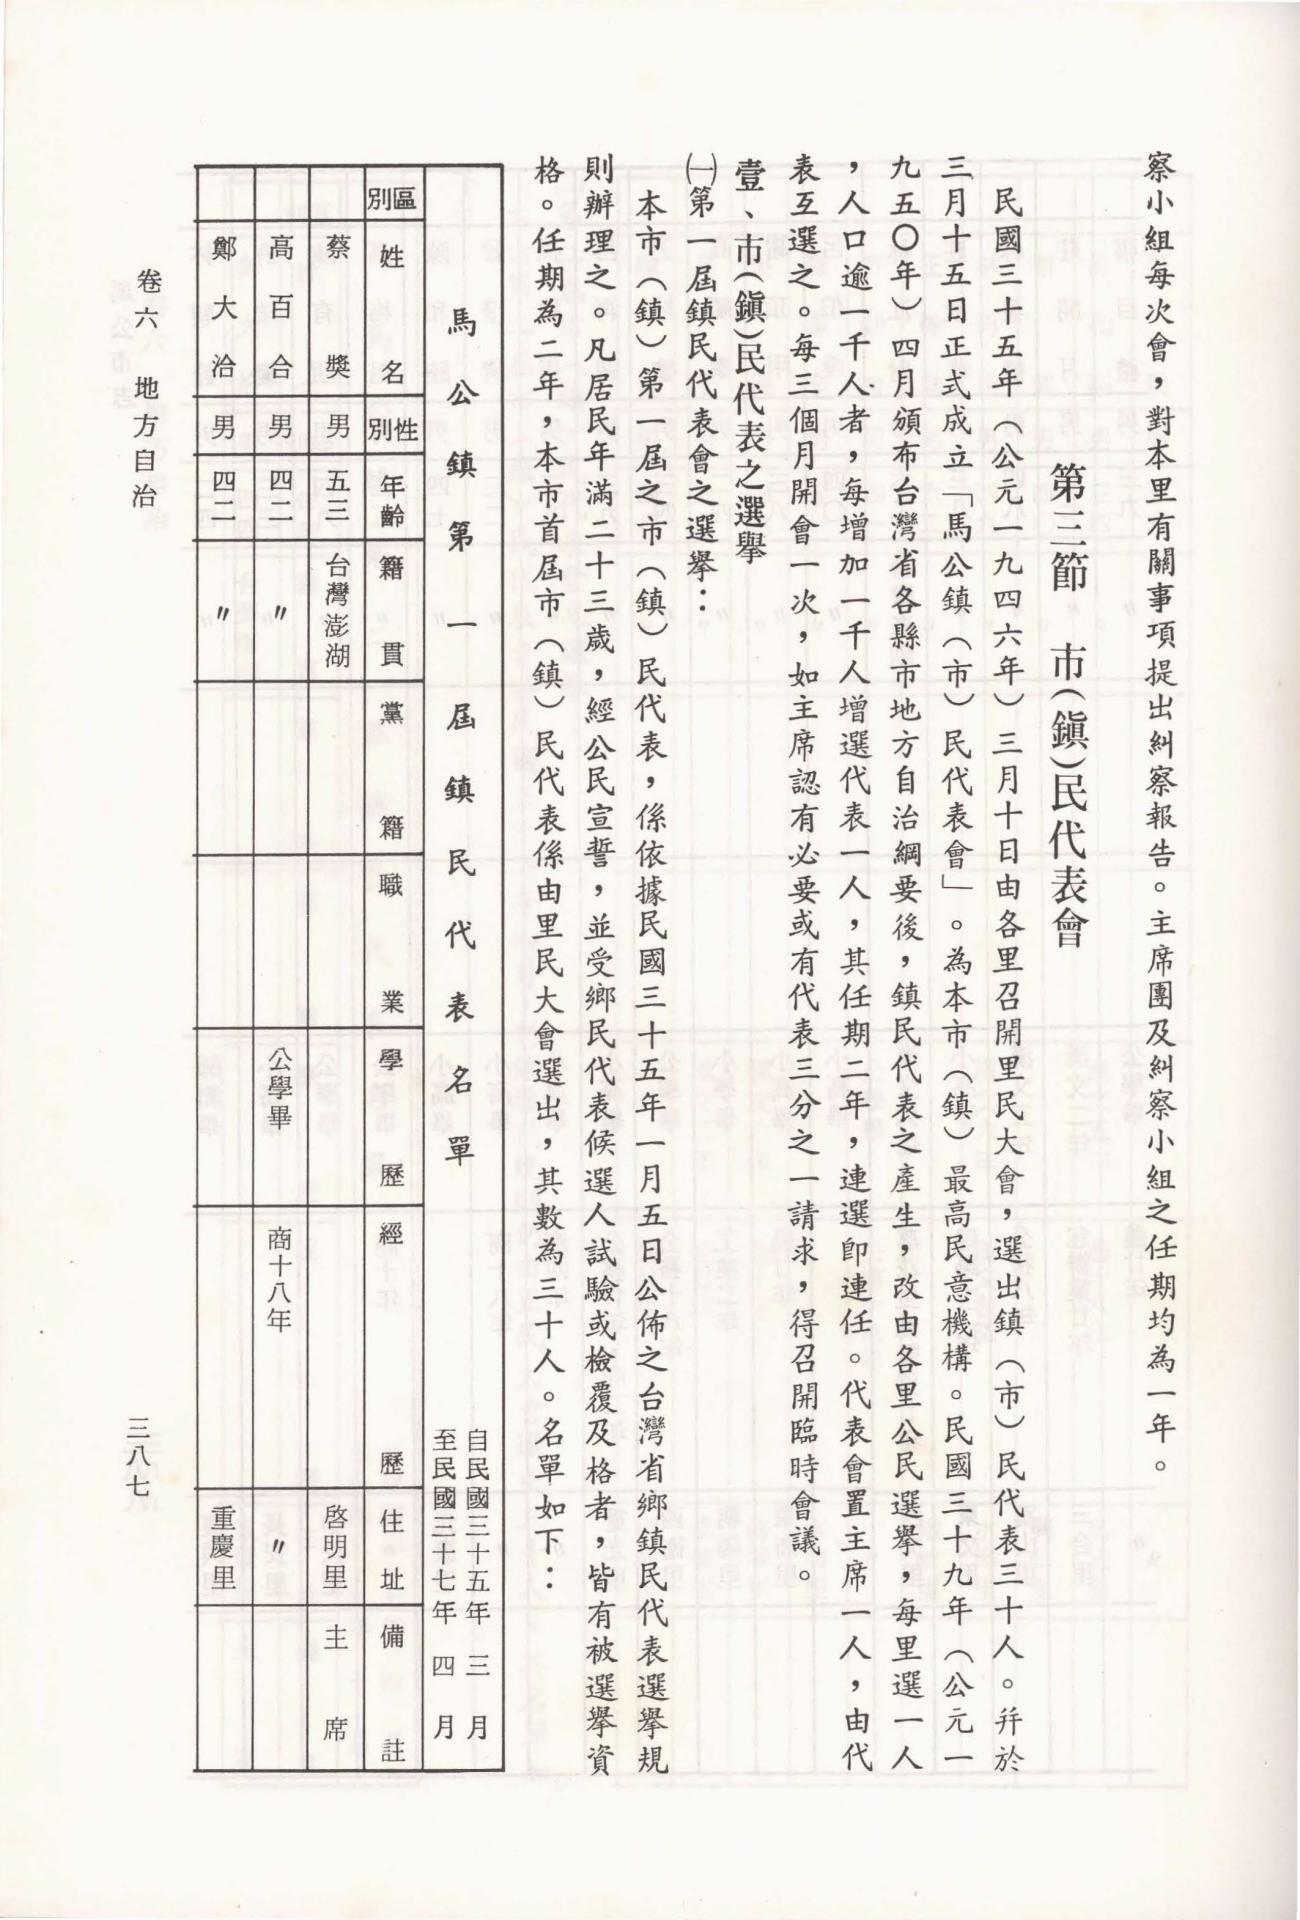 察小組每次會，對本里有關事項提出糾察報告。主席團及糾察小組之任期均為一年。
第三節　市(鎮)民代表會
民國三十五年（公元一九四六年）三月十日由各里召開里民大會，選出鎮（市）民代表三十人。并於
三月十五日正式成立「馬公鎮（市）民代表會」。為本市（鎮）最高民意機構。民國三十九年（公元一
九五〇年）四月頒布台灣省各縣市地方自治綱要後，鎮民代表之產生，改由各里公民選舉，每里選一人
，人口逾一千人者，每增加一千人增選代表一人，其任期二年，連選卽連任。代表會置主席一人，由代
表互選之。每三個月開會一次，如主席認有必要或有代表三分之一請求，得召開臨時會議。
壹、市(鎮)民代表之選舉
㈠第一屆鎮民代表會之選舉：
本市（鎮）第一屆之市（鎮）民代表，係依據民國三十五年一月五日公佈之台灣省鄉鎮民代表選舉規
則辦理之。凡居民年滿二十三歲，經公民宣誓，並受鄉民代表候選人試驗或檢覆及格者，皆有被選舉資
格。任期為二年，本市首屆市（鎮）民代表係由里民大會選出，其數為三十人。名單如下：
馬公鎮第一屆鎮民代表名單
自民國三十五年三月
至民國三十七年四月
區別 姓名 性別 年齡 籍貫 黨籍 職業 學歷 經歷 住址 備註
蔡獎 男 五三 台灣澎湖 啓明里 主席
高百合 男 四二 〃 公學畢 商十八年 〃
鄭大洽 男 四二 〃 重慶里
卷六　地方自治
三八七